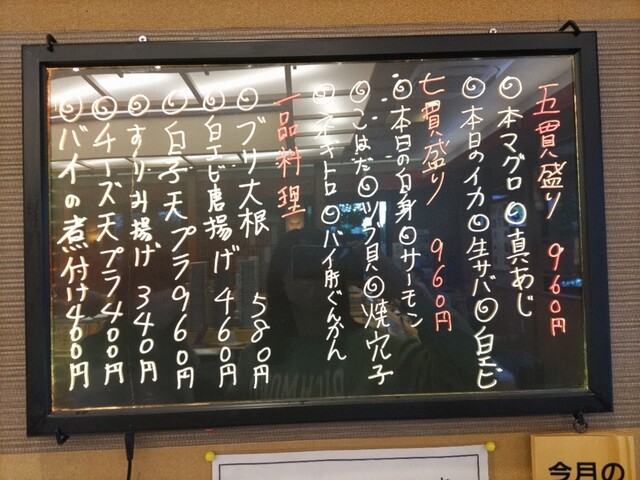 五貫盛り 960円
◎本マグロ◎真あじ
◎本日のイカ◎生サバ◎白エビ
七貫盛り 960円
◎本日の白身◎サーモン
◎こはだ◎ツブ貝◎焼穴子
◎ネギトロ◎バイ肝ぐんかん
一品料理
◎ブリ大根 580円
◎白エビ唐揚げ 460円
◎白子天プラ960円
◎すりみ揚げ 340円
◎チーズ天プラ400円
◎バイの煮付け400円
今月の